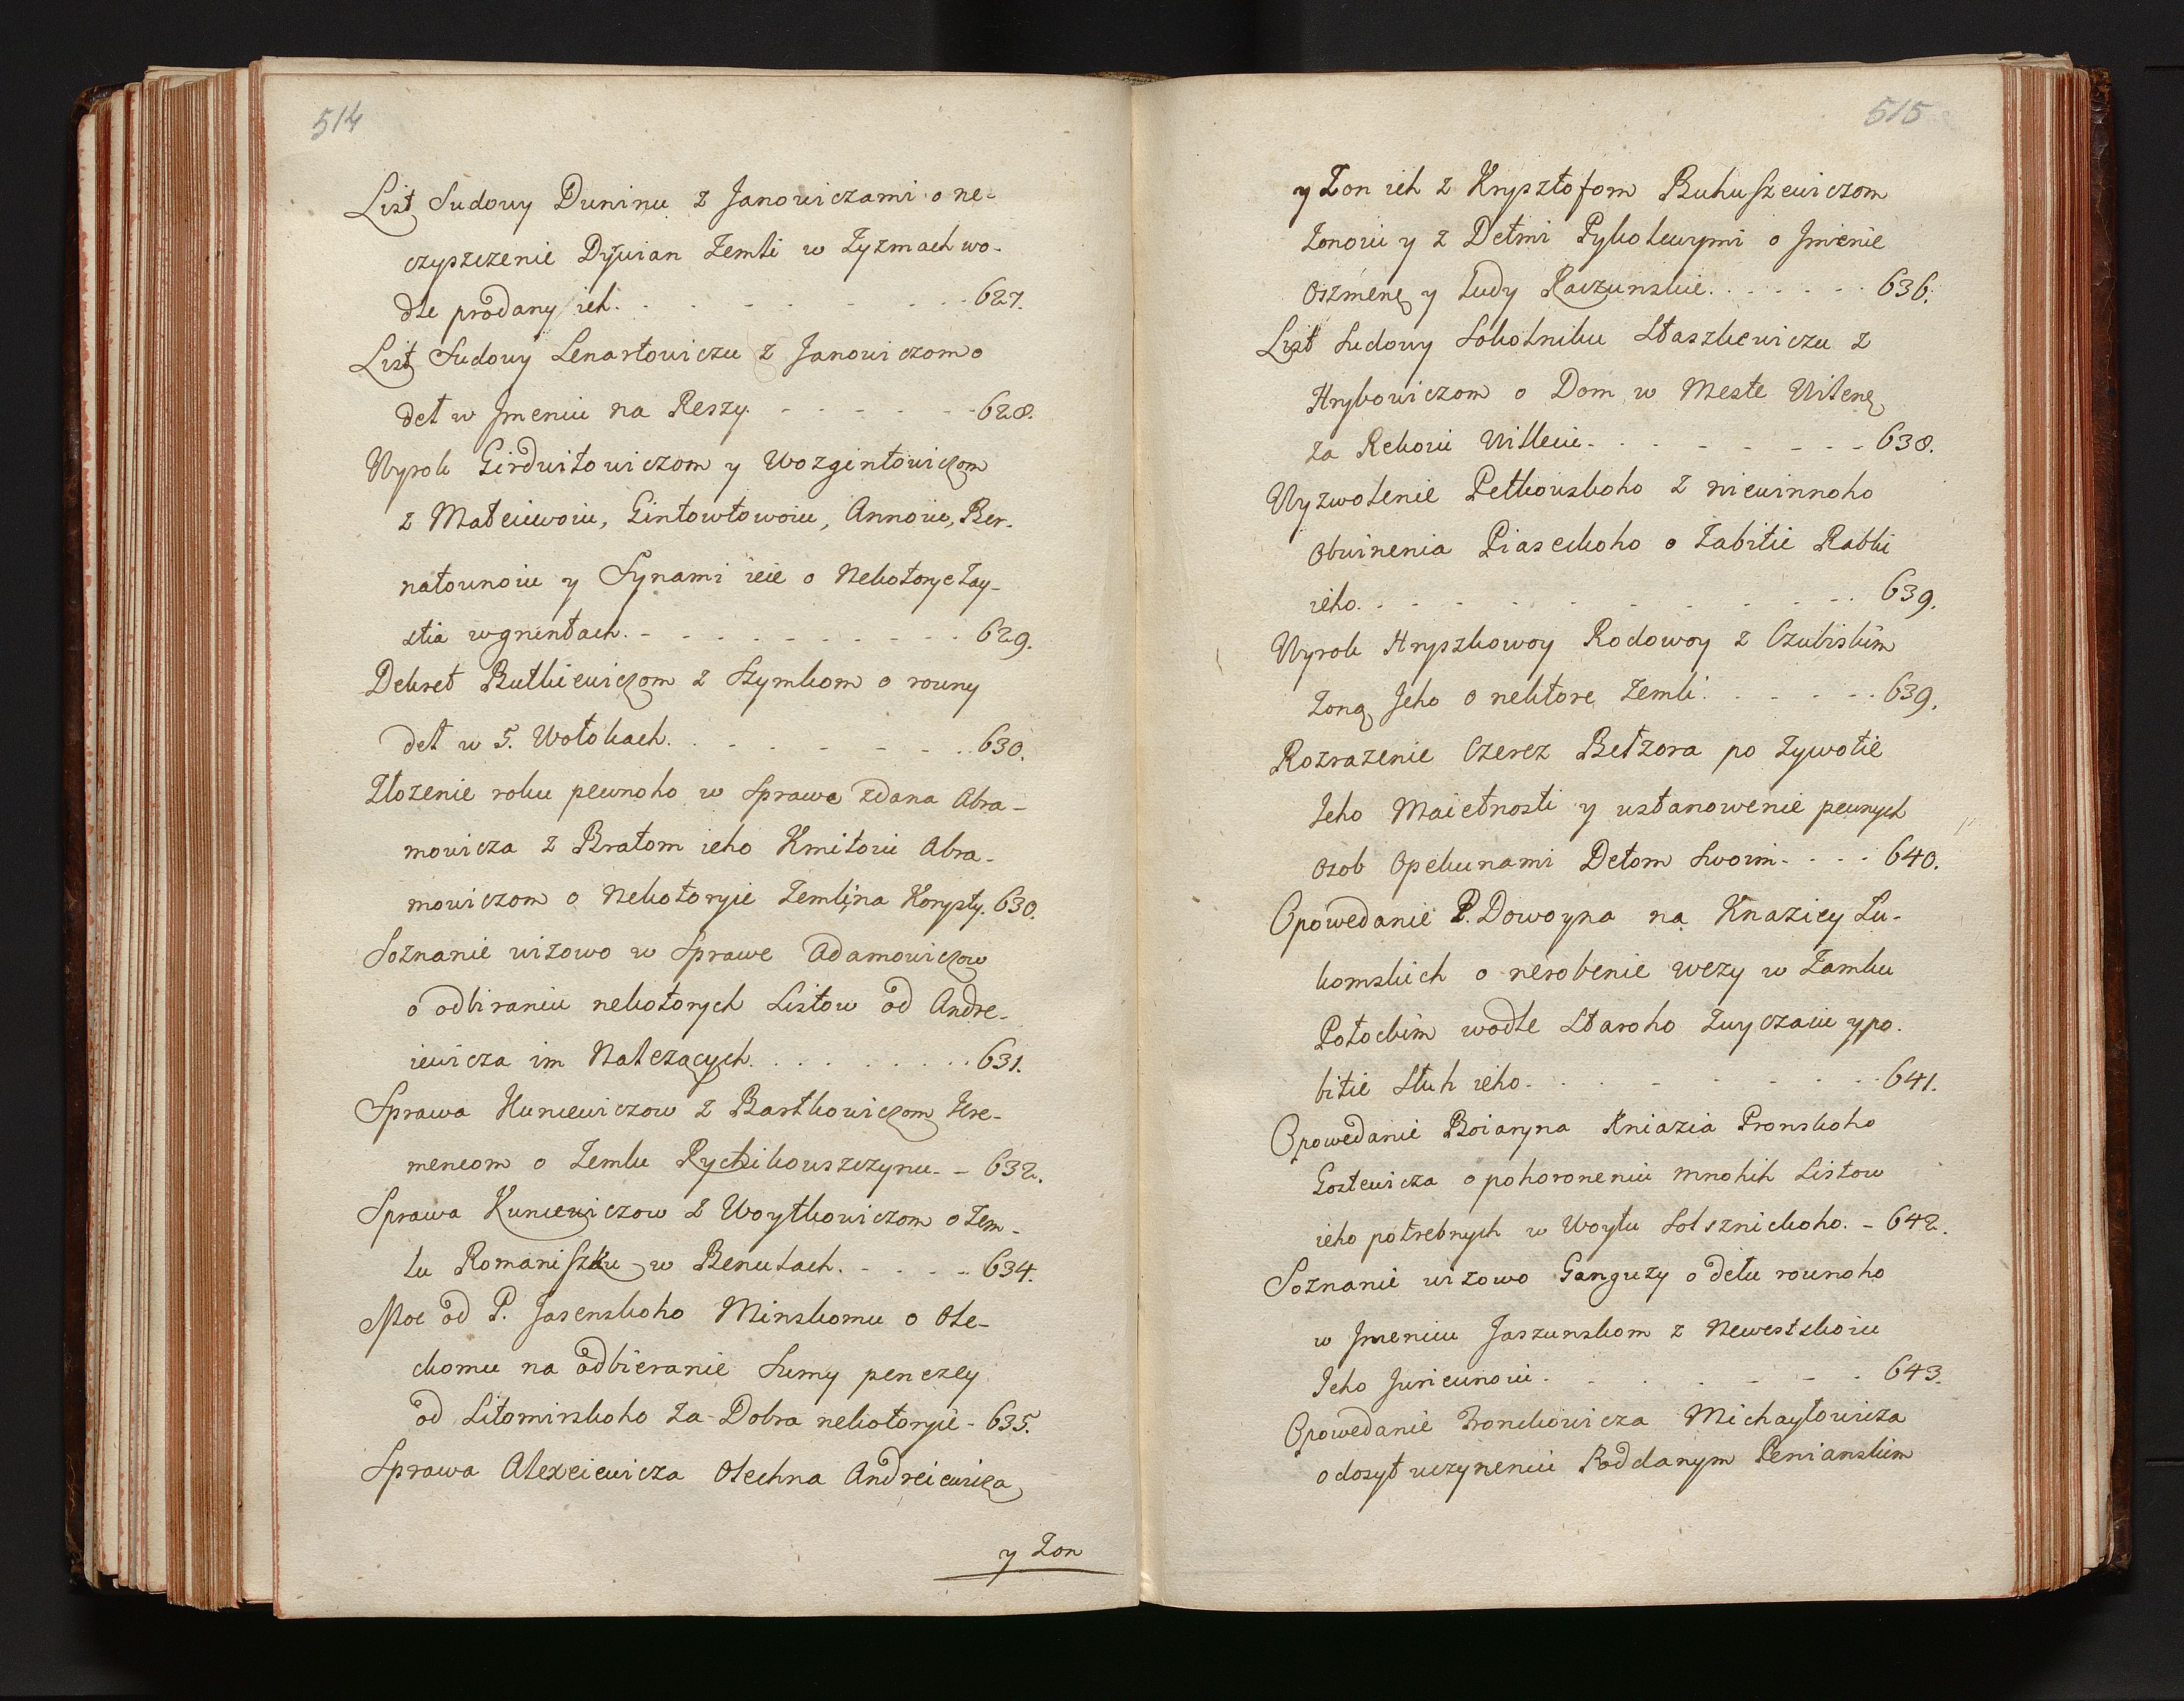 514
List Sudowy Duninu z Janowiczami o ne-
czyszczenie Dywan Zemli w Zyzmach wo-
dle prodany ich. 627.
List Sudowy Lenartowiczu z Janowiczom o
deł w Jmeniu na Reszy. 628.
Wyrok Girdwiłowiczom y Wozgintowiczom
z Mateiewoiu, Gintowtowoiu, Annoiu, Ber-
natounoiu y Synami ieie o Nekotorye Zay-
stia w gruntach. 629.
Dekret Butkiewiczom z Szymkom o rowny
deł w 5. Wołokach. 630.
Złożenie roku pewnoho w Sprawe zdana Abra-
mowicza z Bratom ieho Kmitoiu Abra-
mowiczom o Nekotoryie Zemli na Korysty. 630.
Soznanie wizowo w Sprawe Adamowiczow
o odbiraniu nekotorych Listow od Andre-
iewicza im Należących. 631.
Sprawa Kuncewiczow z Bartkowiczom Hre-
mencom o Zemlu Rychikowszczynu. 632.
Sprawa Kuncewiczow z Woytkowiczom o Zem-
lu Romaniszku w Benulach. 634.
Moc od P. Jasenskoho Minskomu o Ole-
chomu na odbieranie Sumy penezey
od Litominskoho za Dobra nekotoryie - 635.
Sprawa Alexeiewicza Olechna Andreiewicza
y Zon
515
y Zon ich z Krysztofom Buhuszewiczom
Zonoiu y z Detmi Pykolewymi o Jmenie
Oszmenę y Ludy Raczunskie. 636.
List Sudowy Sokolniku Staszkewiczu z
Hrybowiczom o Dom w Meste Wilenę
za Rekoiu Willeiu. 638.
Wyzwolenie Petkowskoho z niewinnoho
Obwinenia Piaseckoho o Zabitie Rabki
ieho. 639.
Wyrok Hryszkowoy Rodowoy z Czubiskim
Zoną Jeho o nektore Zemli. 639.
Rozrazenie Czerez Bełzora po Zywotie
Jeho Maietnosti y ustanowenie pewnych
Osob Opekunami Detom Swoim. 640.
Opowedanie P. Dowoyna na Knaziey Lu-
komskich o nerobenie wezy w Zamku
Połockim wodle Staroho Zwyczaiu y po-
bitie Sluh ieho. 641.
Opowedanie Boiaryna Kniazia Pronskoho
Gostewicza o pohoroneniu mnohih Listow
ieho potrebnych w Woytu Solsznickoho. - 642.
Soznanie wizowo Ganguzy o dełu rownoho
w Jmeniu Jaszunskom z Newestskoiu
Jeho Juriewnoiu. 643.
Opowedanie Fronckowicza Michayłowicza
o dosyt uczyneniu Poddanym Penianskim